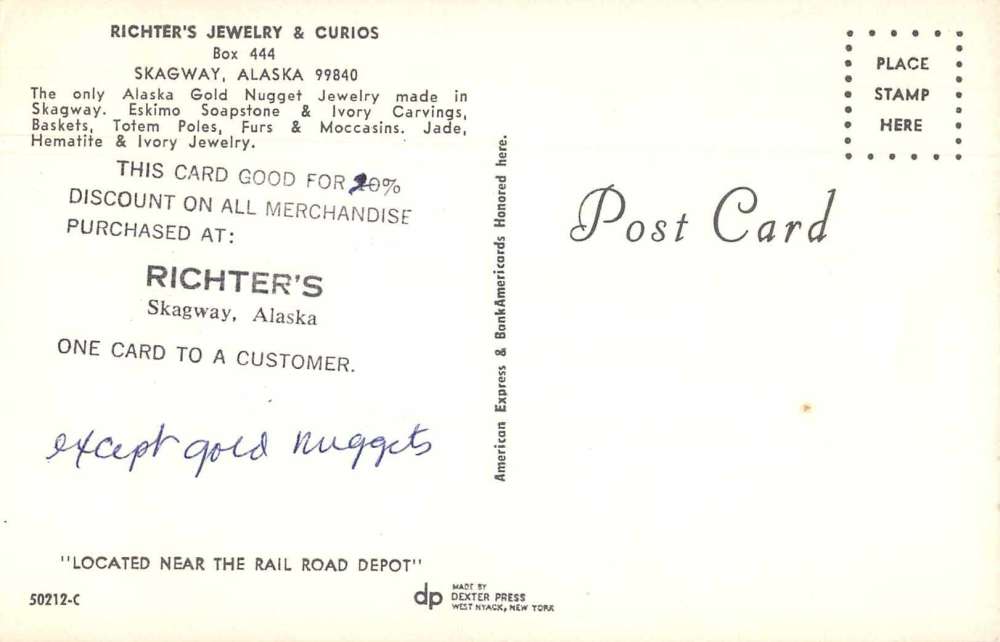 RICHTER'S JEWELRY & CURIOS
Box 444
SKAGWAY, ALASKA 99840
The only Alaska Gold Nugget Jewelry made in
Skagway. Eskimo Soapstone & Ivory Carvings,
Baskets, Totem Poles, Furs & Moccasins. Jade,
Hematite & Ivory Jewelry.
THIS CARD GOOD FOR 20%
DISCOUNT ON ALL MERCHANDISE
PURCHASED AT:
RICHTER'S
Skagway, Alaska
ONE CARD TO A CUSTOMER.
except gold nuggets
"LOCATED NEAR THE RAIL ROAD DEPOT"
50212-C
dp
MADE BY
DEXTER PRESS
WEST NYACK, NEW YORK
American Express & BankAmericards Honored here.
Post Card
PLACE
STAMP
HERE